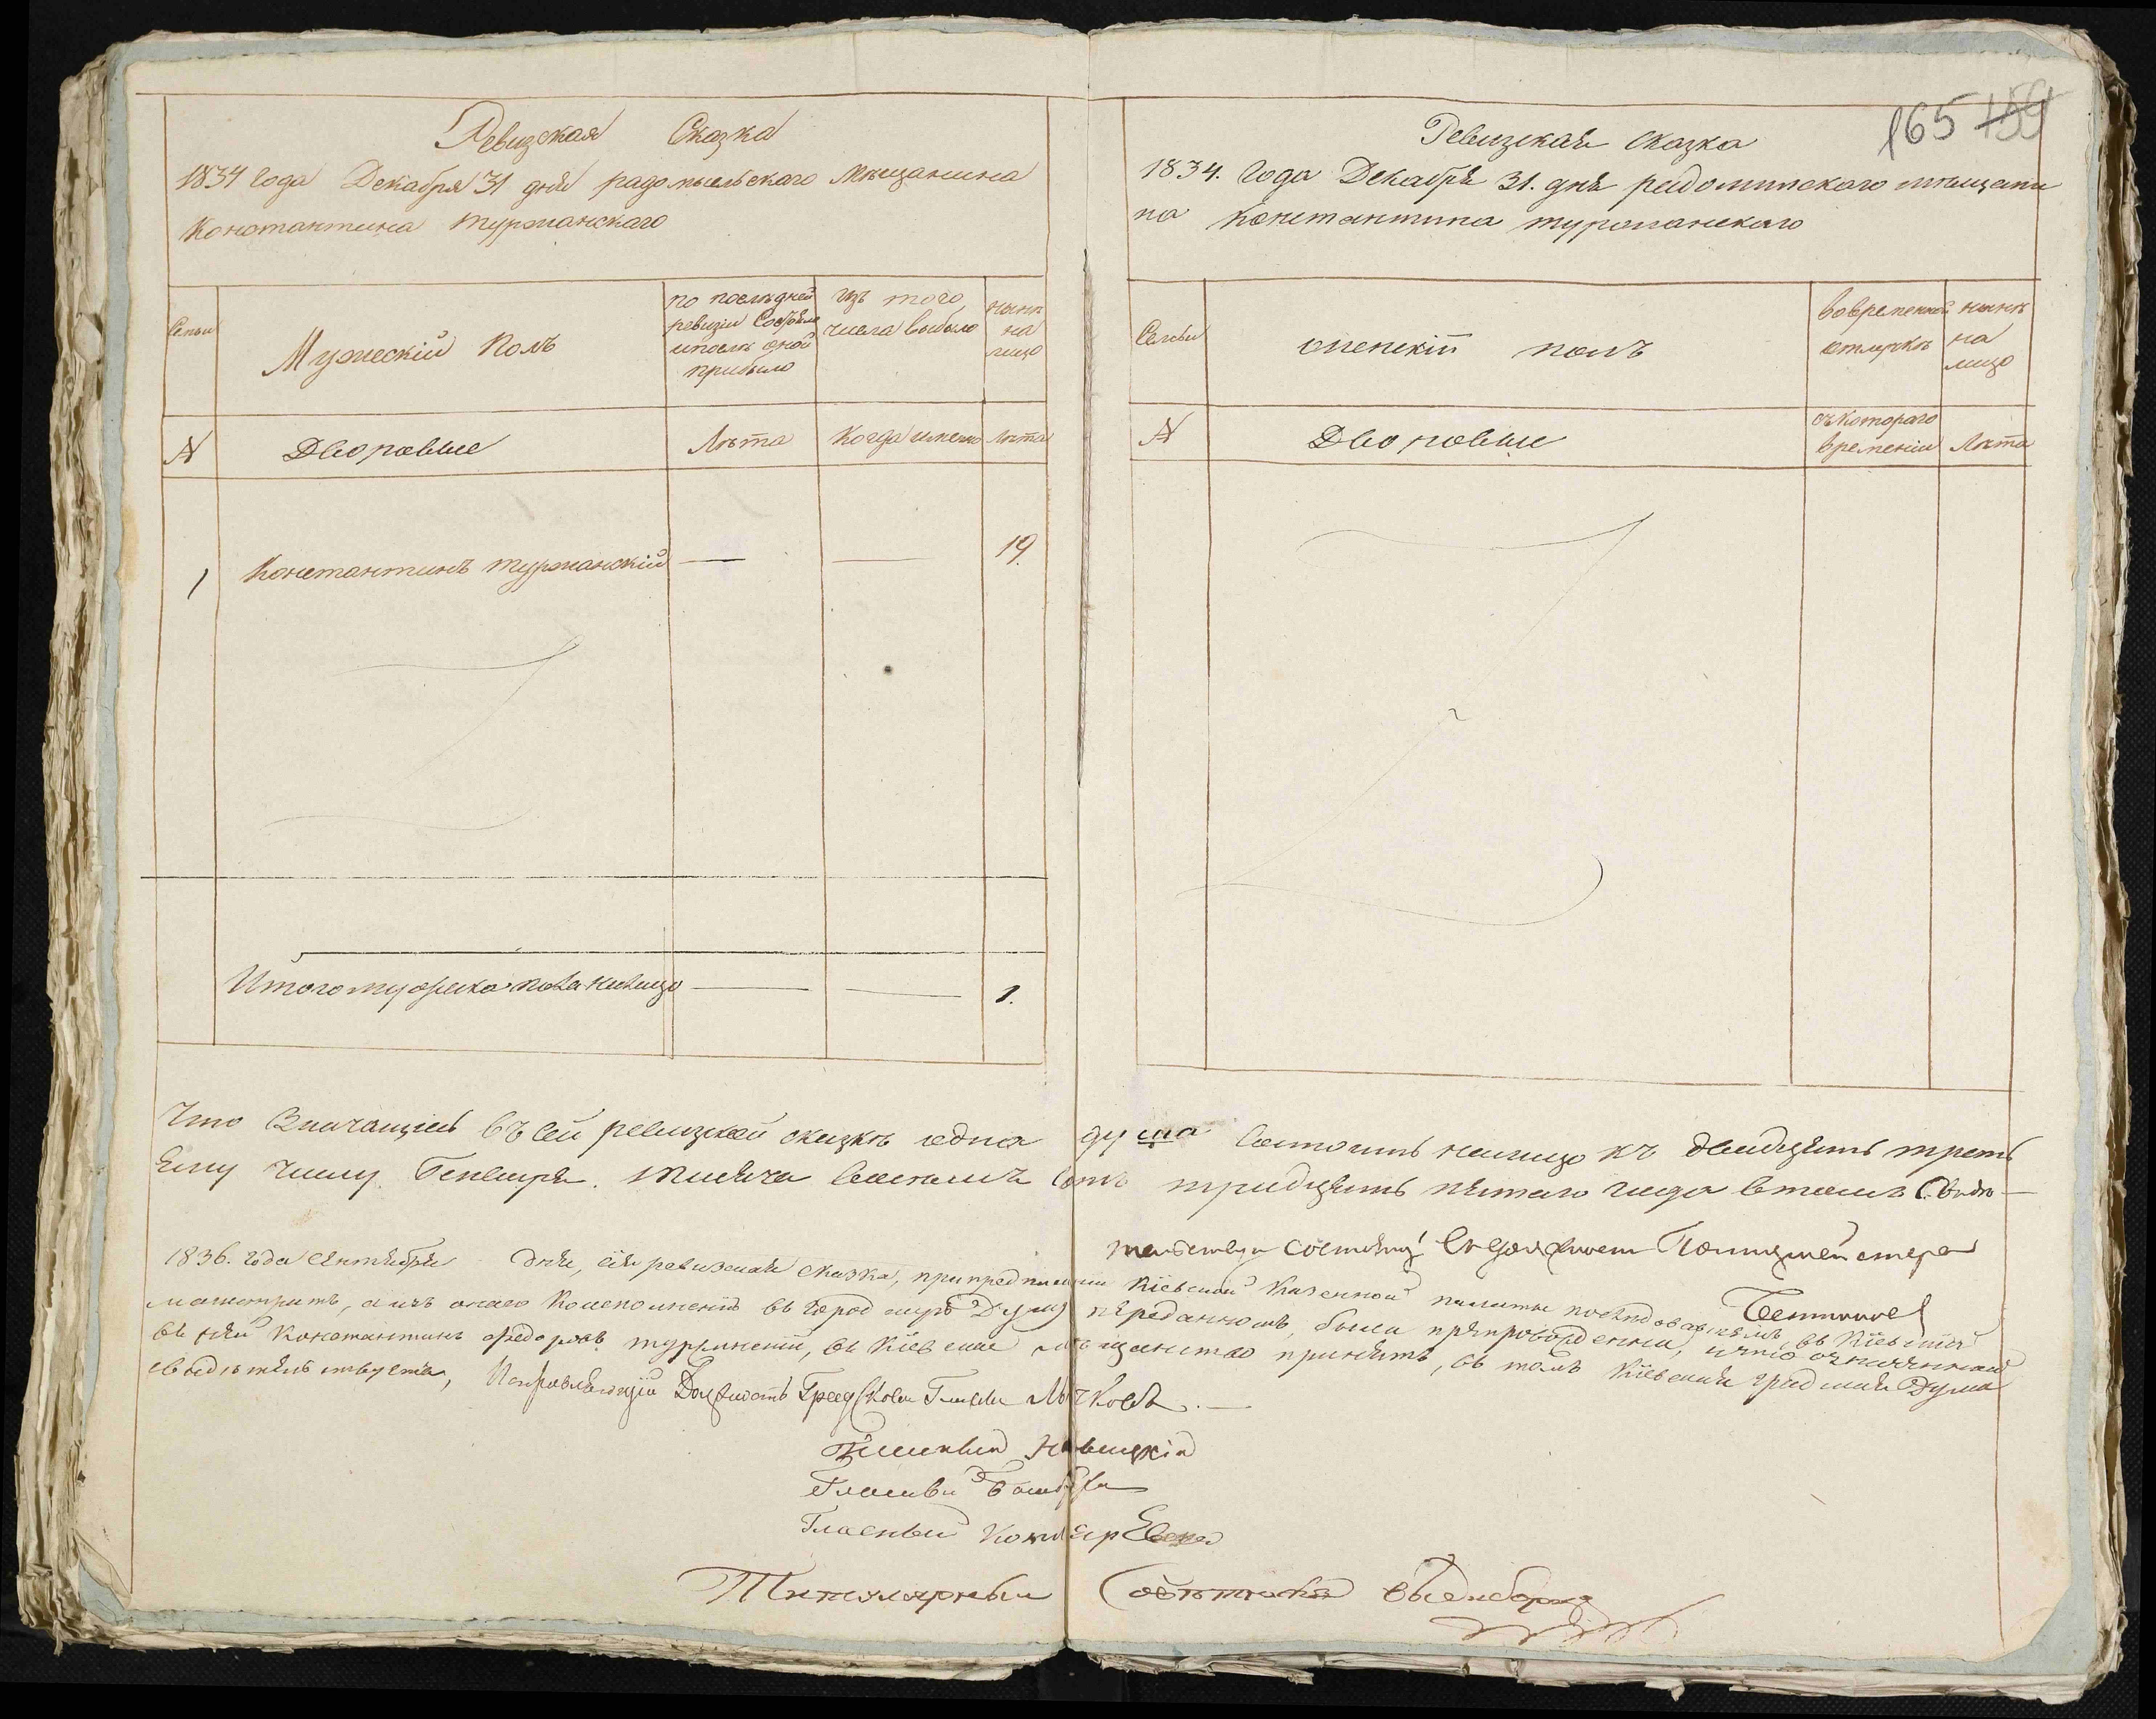 Ревизская Сказка
1834 года Декабря 31 дня радомысльскаго мѣщанина
Константина Туржанскаго
Семьи
Мужескій Полъ
по послѣдней ревизіи Состояло и послѣ оной прибыло
Изъ того числа выбыло
нынѣ на лицо
№
Дворовые
Лѣта
Когда именно
Лѣта
1 Константинъ Туржанскій — — 19.
Итого мужеска пола налицо — — 1.
165 159
Ревизская Сказка
1834. Года Декабря 31. дня радомысскаго мѣщани
на Константина Туржанскаго
Семьи
женскій полъ
во временной отлучкѣ
нынѣ на лицо
№
Дворовые
съ котораго времени
Лѣта
Что Значащіесь въ сей ревизской сказкѣ одна душа Состоитъ налицо къ двадцать треть
ему числу Генваря мѣсяца восемь сотъ тридцать пятаго года в томъ Свидѣ—
тельствуи
Полицмейстера
1836. года сентября дня, сія ревизская сказка, при предписаніи Кіевской Казенной палаты въ Кіевскій
магистратъ, а изъ онаго въ Город Думу переданною, были препровождены, и что означенный
въ ней Константинъ Федоровъ Туржанскій, въ Кіевское мѣщанство принятъ, въ томъ Кіевская градская Дума
свидѣтельствуетъ, Исправляющій Должность Градскаго Главы
Гласный Новицкій
Гласный
Гласный
Титулярный Совѣтникъ